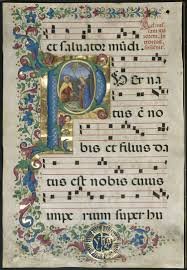 et salvator mũdi.
Puer na
tus est no
bis et filius da
tus est nobis cuius
impe rium super hu